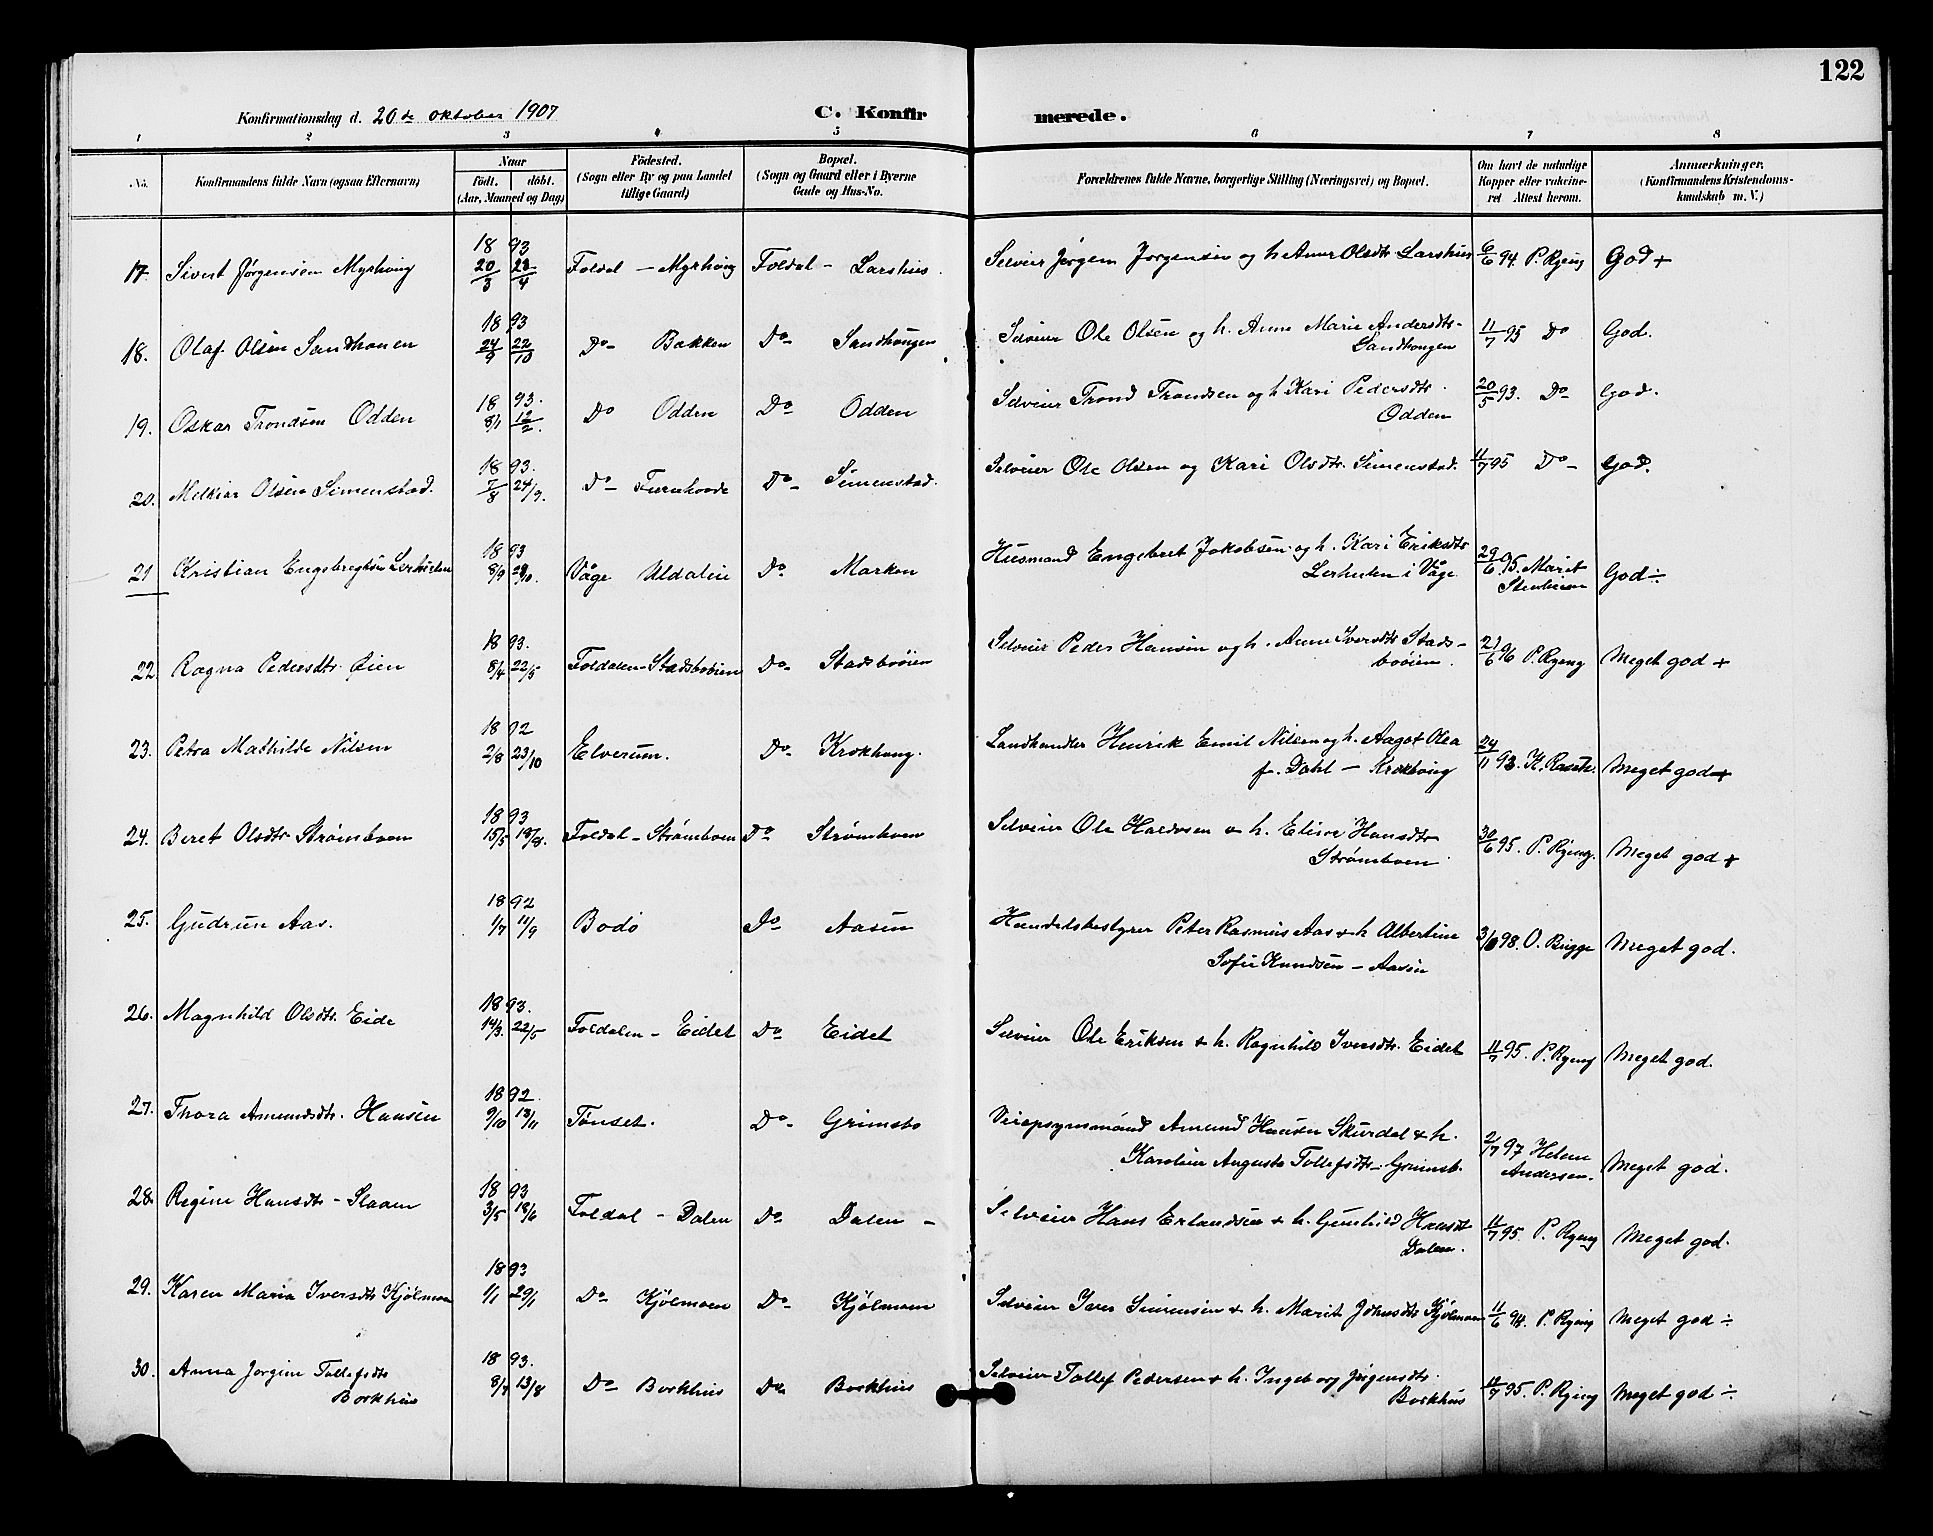 122
Konfirmationsdag d. 20de oktober 1907 C. Konfirmerede.
1 2 3 4 5 6 7 8
No. Konfirmandens fulde Navn (ogsaa Efternavn) Naar født. døbt. (Aar, Maaned og Dag) Fødested. (Sogn eller By og paa Landet tillige Gaard) Bopæl. (Sogn og Gaard eller i Byerne Gade og Hus-No. Forældrenes fulde Navne, borgerlige Stilling (Næringsvei) og Bopæl. Om havt de naturlige Kopper eller vakcineret Attest herom. Anmærkninger. (Konfirmandens Kristendomskundskab m. V.)
17. Sivert Jørgensen Myrhaug 1893 20/3 23/4 Foldal - Myrhaug Foldal - Larshus. Selveier Jørgen Jørgensen og h Anne Olsdtr Larshus 6/6 94. P. Ryeng God +
18. Olaf Olsen Sandhauen 1893 24/9 22/10 Do- Bakken Do- Sandhaugen Selveier Ole Olsen og h. Anne Marie Andersdtr-
Sandhaugen 11/7 95 Do God.
19. Oskar Trondsen Odden 1893. 8/1 12/2. Do Odden Do Odden Selveier Trond Trondsen og h Kari Pedersdtr.
Odden 20/5 93. Do God.
20. Melkior Olsen Simenstad. 1893. 7/8 24/9. Do- Furuhovde Do- Simenstad. Selveier Ole Olsen og Kari Olsdtr. Simenstad. 11/7 95 Do- God.
21 Kristian Engebregtsen 1893 8/9 Våge Uldalen Do Marken Husmand Engebret Jakobsen og h. Kari Eriksdtr
i Våge. 29/6 95. Marit God ÷
22. Ragna Pedersdtr. Øien 1893. 8/4 22/5 Foldalen-Stadsbuøien Do- Stadsbuøien Selveier Peder Hansen og h. Anne Iversdtr Stads-
buøien. 21/6 96 P. Ryeng Meget god +
23. Petra Mathilde Nilsen 1892 2/8 23/10 Elverum. Do- Krokhaug. Landhandler Henrik Emil Nilsen og h. Aagot Olea
f. Dahl - Krokhaug 24/11 93. Meget god +
24. Beret Olsdtr Strømboen 1893 15/5 13/8. Foldal - Strømboen Do Strømboen Selveier Ole Haldosen & h. Elise Hansdtr
Strømboen. 30/6 95. P. Ryeng. Meget god +
25. Gudrun Aas. 1892 1/7 11/9 Bodö Do Aasen Handelsbestyrer Peter Rasmus Aas & h Albertine
Sofie Knudsen - Aasen 98. O. Brigge Meget god.
26. Magnhild Olsdtr. Eide 1893. 14/3. 22/5 Foldalen - Eidet Do Eidet Selveier Ole Eriksen & h. Ragnhild Iversdtr. Eidet 11/7 95. P. Ryeng Meget god.
27. Thora Amundsdtr. Hansen 1892. 9/10 13/11 Tønset. Do- Grimsbo Amund Hansen Skurdal & h.
Karoline Augusta Tollefsdtr - Grimsb. 2/7 97 Helene
Andersen. Meget god.
28. Regine Hansdtr - Slaaen 1893 3/5 18/6 Foldal - Dalen Do Dalen - Selveier Hans Erlandsen & h. Gunhild Hansdt
Dalen. 11/7 95. P. Ryeng Meget god.
29. Karen Maria Iversdtr Kjølmoen 1893 1/1 29/1 Do- Kjölmoen Do- Kjölmoen Selveier Iver Simensen & h. Marit Johnsdtr Kjølmoen 11/6 94. P. Ryeng Meget god ÷
30. Anna Jørgine Tollefsdtr
Borkhus 1893. 8/7 13/8 Do- Borkhus Do- Borkhus Selveier Tollef Pedersen & h. Ingeborg Jørgensdtr.
Borkhus 11/7 95. P. Ryeng Meget god ÷